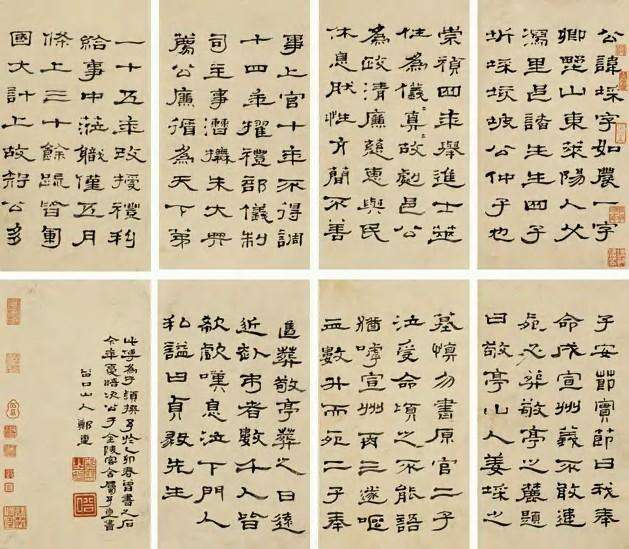 公諱埰字如農一字
卿墅山東萊陽人父
瀉里邑諸生生四子
圻埰垓坡公仲子也
崇禎四年舉進士筮
為儀真真故劇邑公
為政清廉慈惠與民
休息肰性方簡不善
事上官十年不得調
十四年擢禮部儀制
司主事漕撫朱大典
薦公廉循為天下第
一十五年改授禮科
給事中蒞職僅五月
條上三十餘疏皆軍
國大計上故公多
子安節實節曰我奉
命戍宣州義不敢違
死必葬敬亭之麓題
曰敬亭山人姜埰之
墓慎勿書原官二子
泣受命頃之不能語
猶嘑宣州再三遂嘔
血數升而死二子奉
遺葬敬亭葬之日遠
近赴弔者數千人皆
欷歔嘆息泣下門人
私諡曰貞毅先生
此傳為予乙卯春曾書之石
今年夏時次公子金陵客舍屬予重書
谷口山人鄭簠